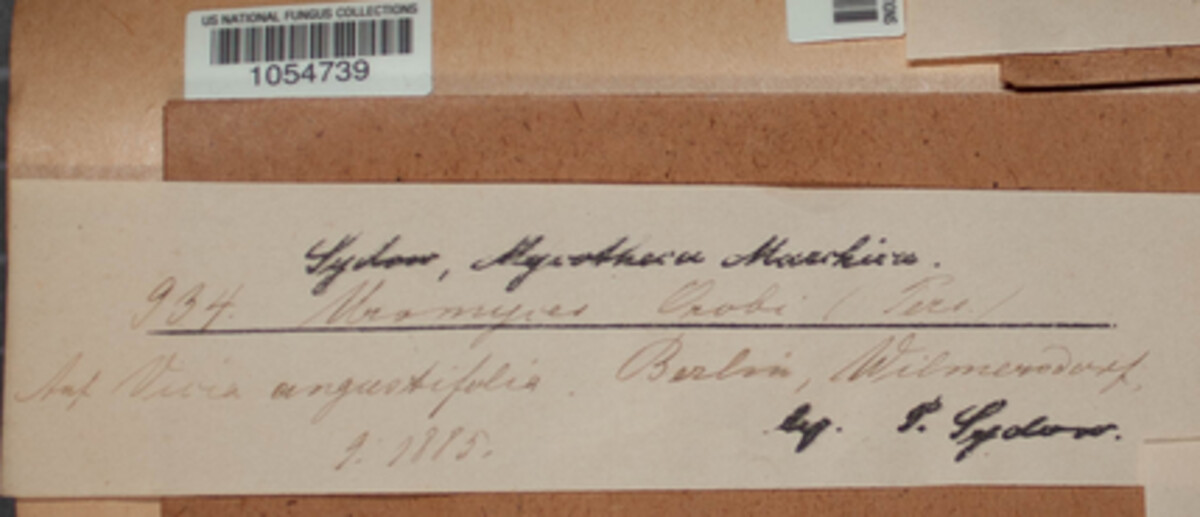 US NATIONAL FUNGUS COLLECTIONS
1054739
Sydow, Mycotheca Marchica.
934. Uromyces Orobi (Pers.)
Auf Vicia angustifolia. Berlin, Wilmersdorf,
9. 1885.
leg. P. Sydow.